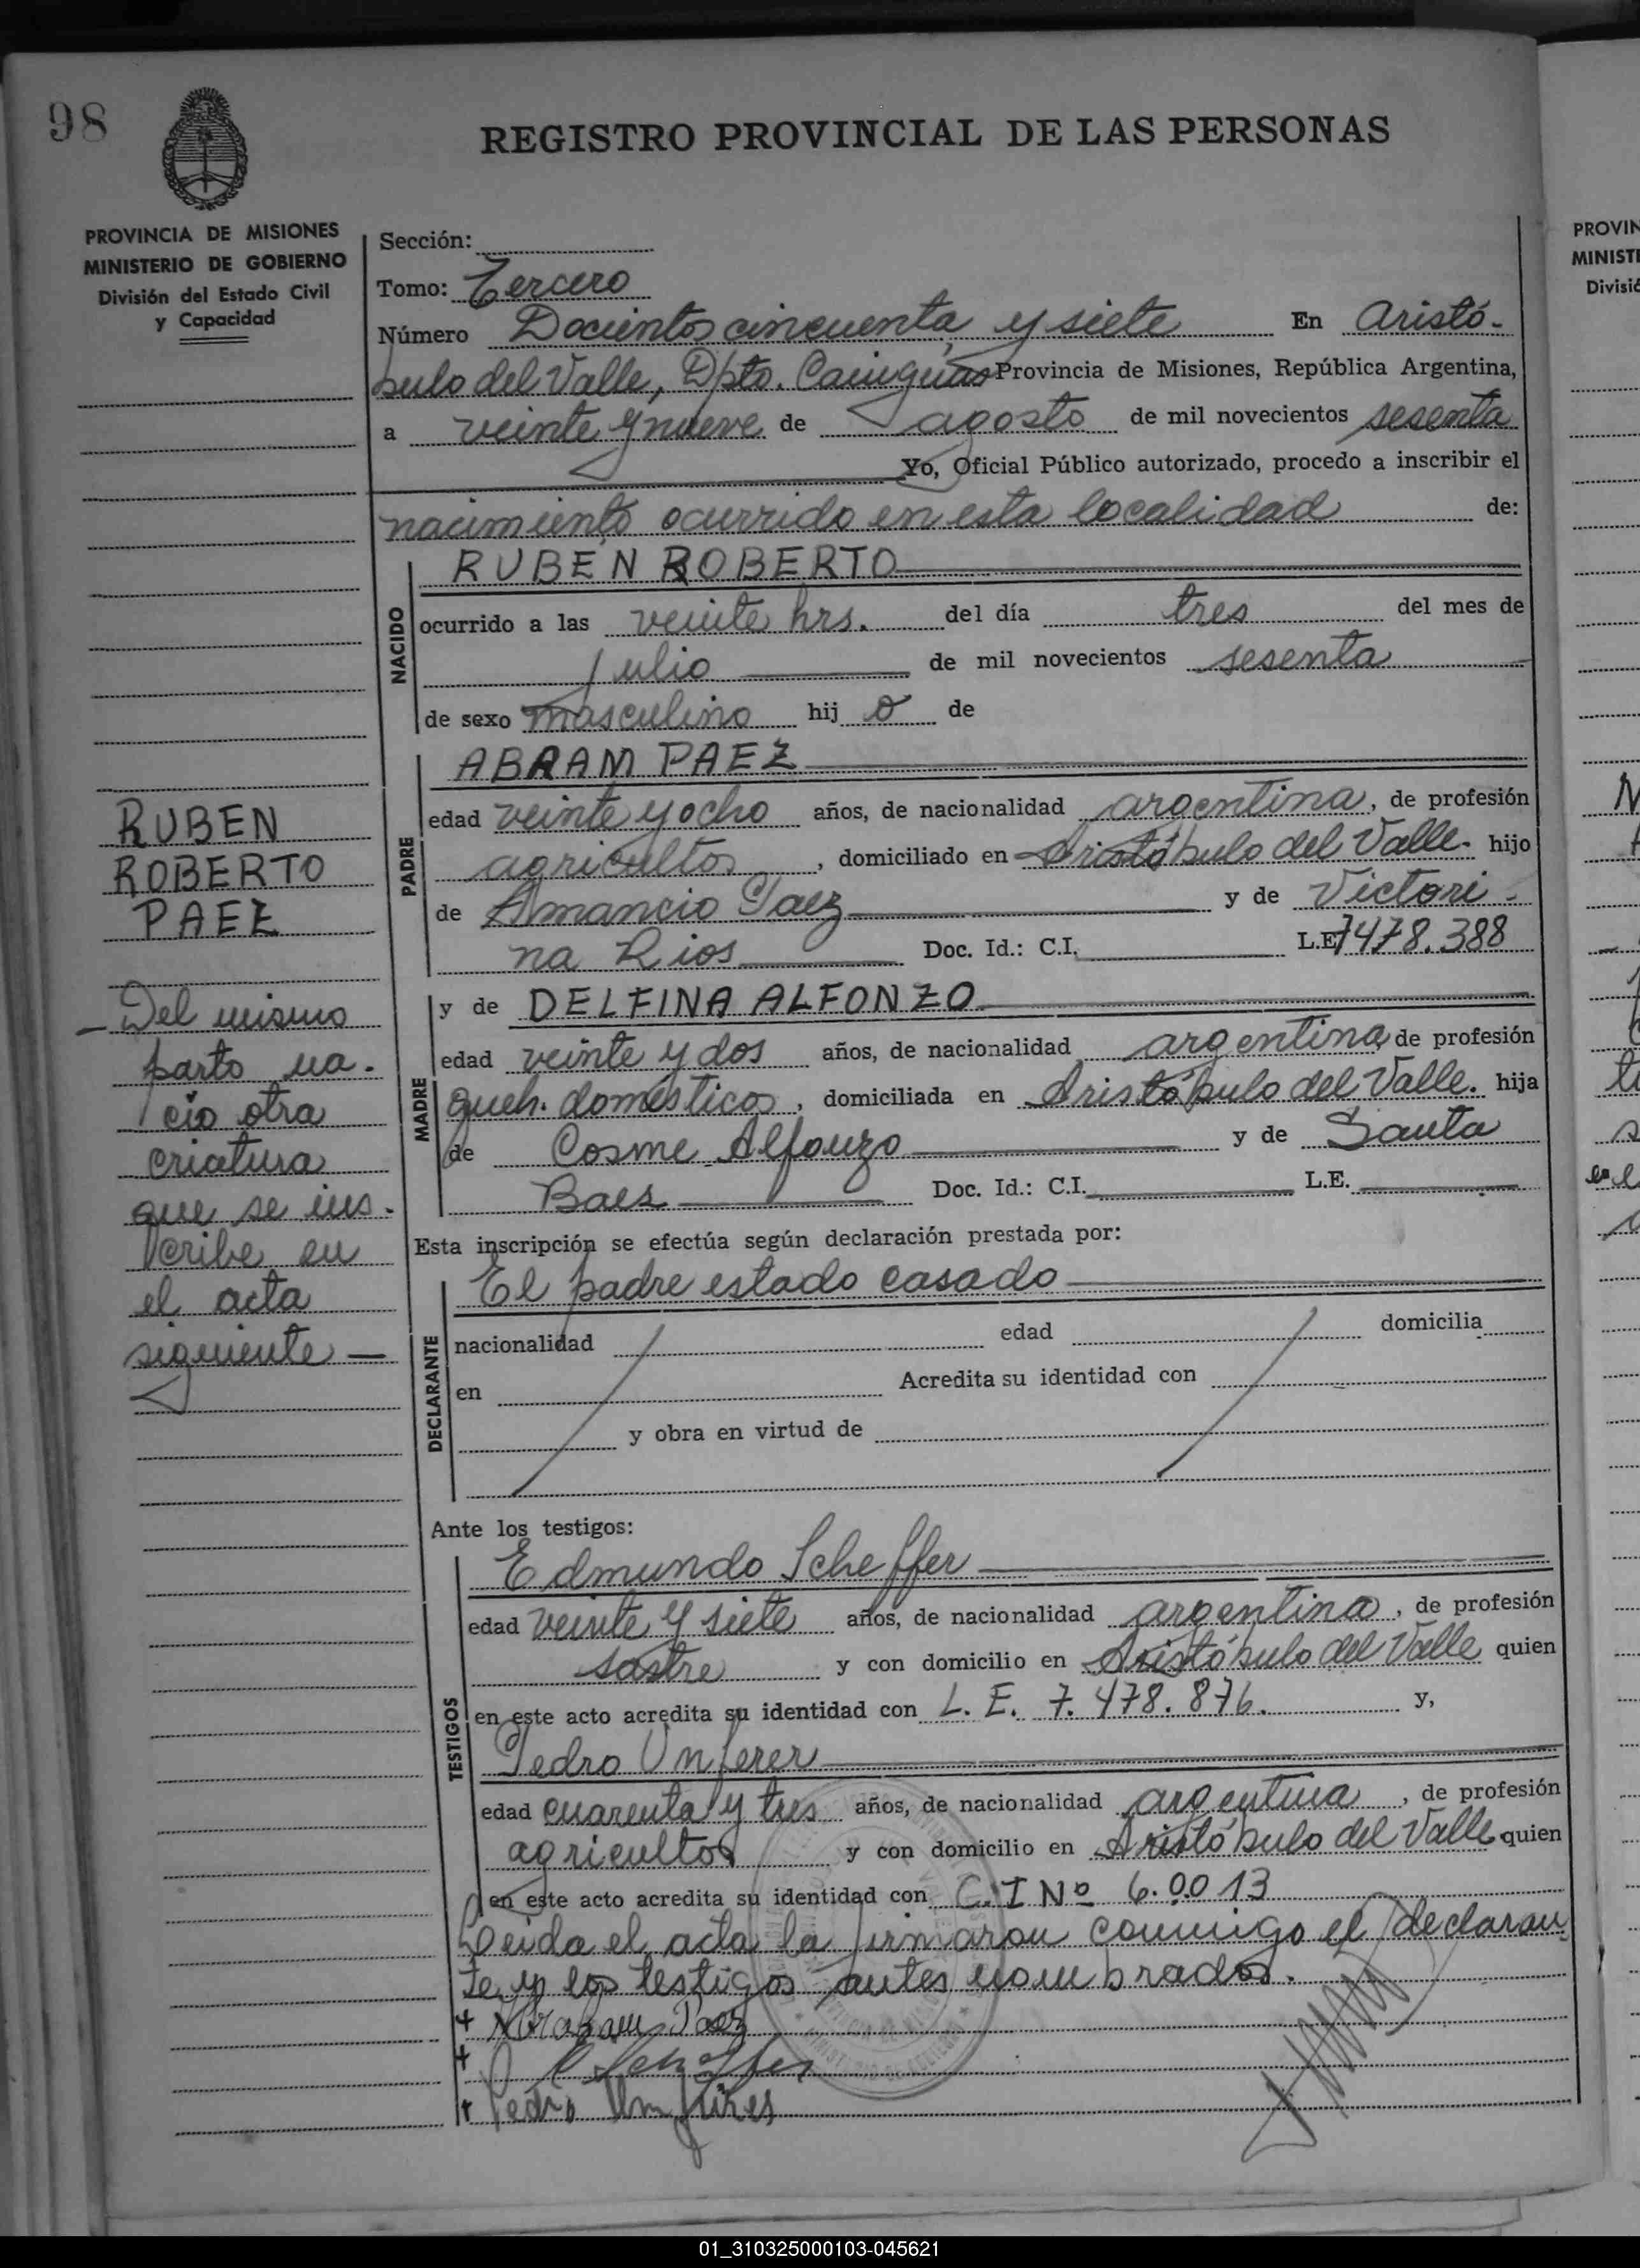 98
REGISTRO PROVINCIAL DE LAS PERSONAS
PROVINCIA DE MISIONES
MINISTERIO DE GOBIERNO
División del Estado Civil
y Capacidad
Sección:
Tomo: Tercero
Número Docientos cincuenta y siete En Aristó-
bulo del Valle, Dpto. Cainguás Provincia de Misiones, República Argentina,
a veinte y nueve de agosto de mil novecientos sesenta
Yo, Oficial Público autorizado, procedo a inscribir el
nacimiento ocurrido en esta localidad de:
NACIDO
RUBEN ROBERTO
ocurrido a las veinte hrs. del día tres del mes de
julio de mil novecientos sesenta
de sexo masculino hij o de
PADRE
ABRAM PAEZ
edad veinte y ocho años, de nacionalidad argentina, de profesión
agricultor, domiciliado en Aristóbulo del Valle. hijo
de Amancio Paez y de Victori-
na Rios Doc. Id.: C.I. L.E. 7478.388
MADRE
y de DELFINA ALFONZO
edad veinte y dos años, de nacionalidad argentina, de profesión
queh. domésticos, domiciliada en Aristóbulo del Valle. hija
de Cosme Alfonzo y de Santa
Baes Doc. Id.: C.I. L.E.
Esta inscripción se efectúa según declaración prestada por:
DECLARANTE
El padre estado casado
nacionalidad edad domicilia
en Acredita su identidad con
y obra en virtud de
Ante los testigos:
TESTIGOS
Edmundo Scheffer
edad veinte y siete años, de nacionalidad argentina, de profesión
sastre y con domicilio en Aristóbulo del Valle quien
en este acto acredita su identidad con L. E. 7.478.876. y,
Pedro Unferer
edad cuarenta y tres años, de nacionalidad argentina, de profesión
agricultor y con domicilio en Aristóbulo del Valle quien
en este acto acredita su identidad con C.I Nº 6.0013
Leida el acta la firmaron conmigo el declaran
te y los testigos antes nombrados.
+ Abraham Paez
+ E. Scheffer
+ Pedro
RUBEN
ROBERTO
PAEZ
- Del mismo
parto na-
cio otra
criatura
que se ins-
cribe en
el acta
siguiente -
PROVIN
MINISTE
Divisió
01_310325000103-045621